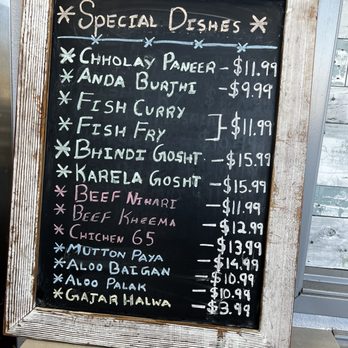 * Special Dishes *
* Chholay Paneer - $11.99
* Anda Burjhi - $9.99
* Fish Curry
* Fish Fry ] - $11.99
* Bhindi Gosht - $15.99
* Karela Gosht - $15.99
* Beef Nihari - $11.99
* Beef Kheema - $12.99
* Chichen 65 - $13.99
* Mutton Paya - $14.99
* Aloo Baigan - $10.99
* Aloo Palak - $10.99
* Gajar Halwa - $3.99